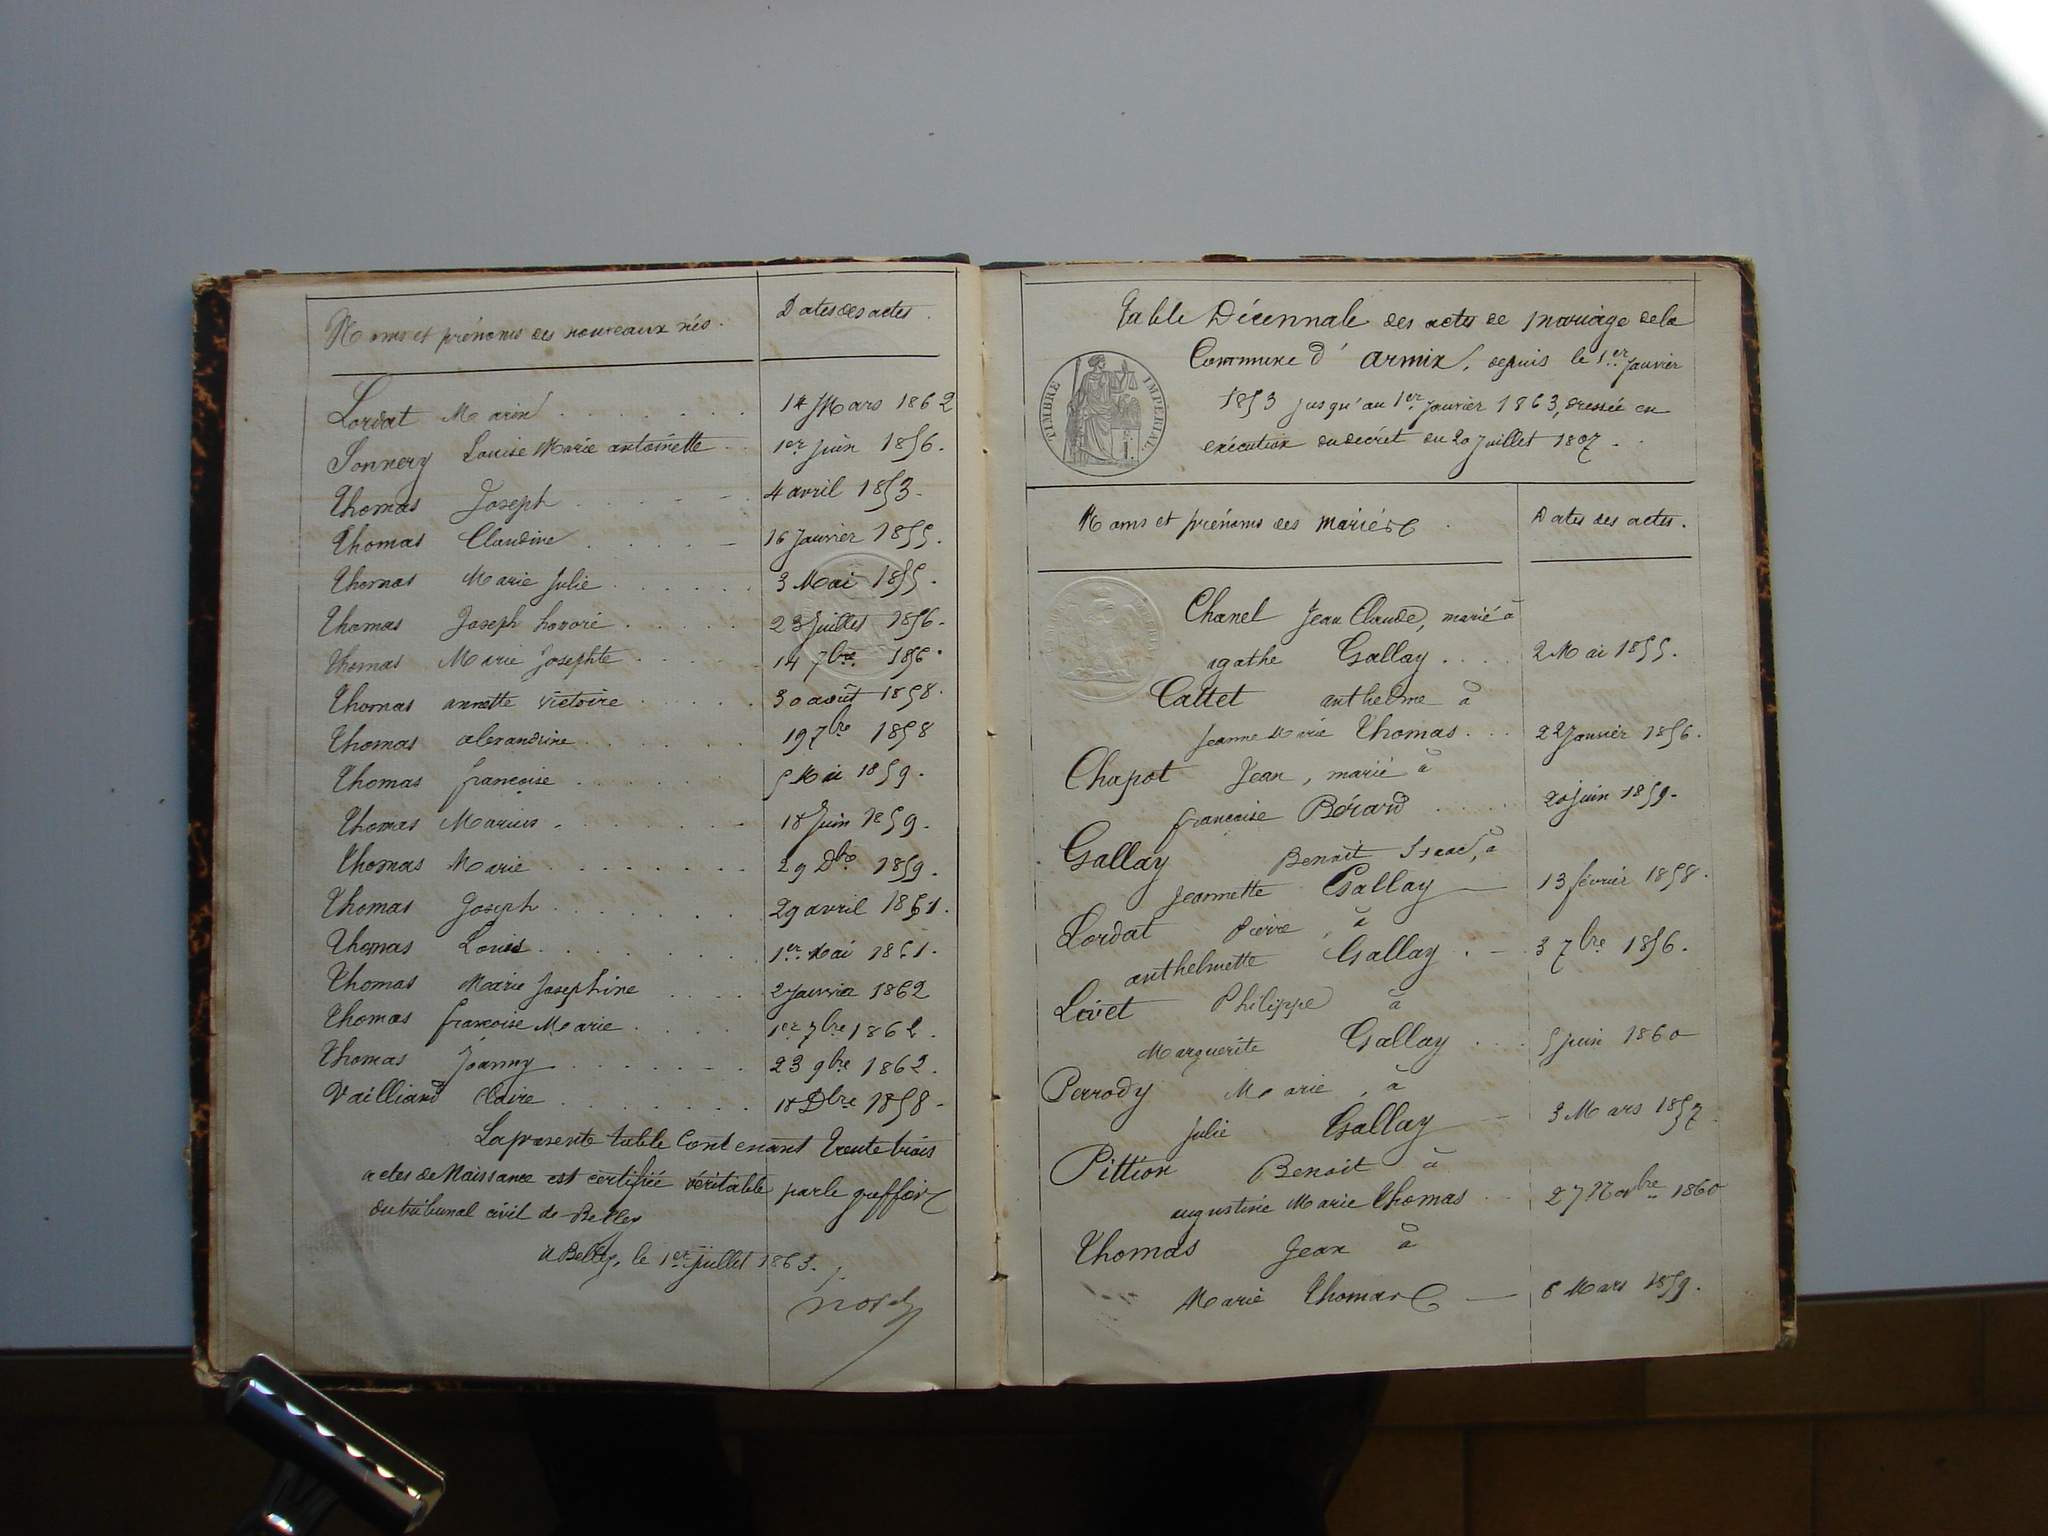 Noms et prénoms des nouveaux nés. Dates des actes.
Lordat Marin 14 Mars 1862
Sonnery Louise Marie antoinette 1er juin 1856.
Thomas Joseph 4 avril 1853.
Thomas Claudine 16 Janvier 1855.
Thomas Marie Julie 3 Mai 1855.
Thomas Joseph honoré 23 Juillet 1856.
Thomas Marie Josephte 14 7bre 1856.
Thomas annette victoire 30 août 1858.
Thomas alexandrine 19 7bre 1858
Thomas françoise 5 Mai 1859.
Thomas Marius 18 Juin 1859.
Thomas Marie 29 Dbre 1859.
Thomas Joseph 29 avril 1861.
Thomas Louis 1er Mai 1861.
Thomas Marie Josephine 2 Janvier 1862
Thomas françoise Marie 1er 7bre 1862.
Thomas Joanny 23 9bre 1862.
Vailliand Claire 18 Dbre 1858.
La présente table Contenant trente trois
actes de Naissance est certifiée véritable par le greffier
du tribunal civil de Belley
à Belley, le 1er juillet 1863.
Table Décennale des actes de mariage de la
Commune d'armix, depuis le 1er Janvier
1853 jusqu'au 1er Janvier 1863, dressée en
exécution du décret du 20 Juillet 1807.
TIMBRE IMPERIAL
Noms et prénoms des mariés Dates des actes.
Chanel Jean Claude, marié à
agathe Gallay 2 Mai 1855.
Cattet anthelme à
Jeanne Marie Thomas 22 Janvier 1856.
Chapot Jean, marié à
françoise Bérard 20 Juin 1859.
Gallay Benoit Isaac, à
Jeannette Gallay 13 février 1858.
Lordat Pierre, à
anthelmette Gallay 3 7bre 1856.
Livet Philippe à
Marguerite Gallay 5 juin 1860
Perrody Marie, à
Julie Gallay 3 Mars 1857.
Pittion Benoit à
augustine Marie Thomas 27 Novbre 1860
Thomas Jean à
Marie Thomas 8 Mars 1859.